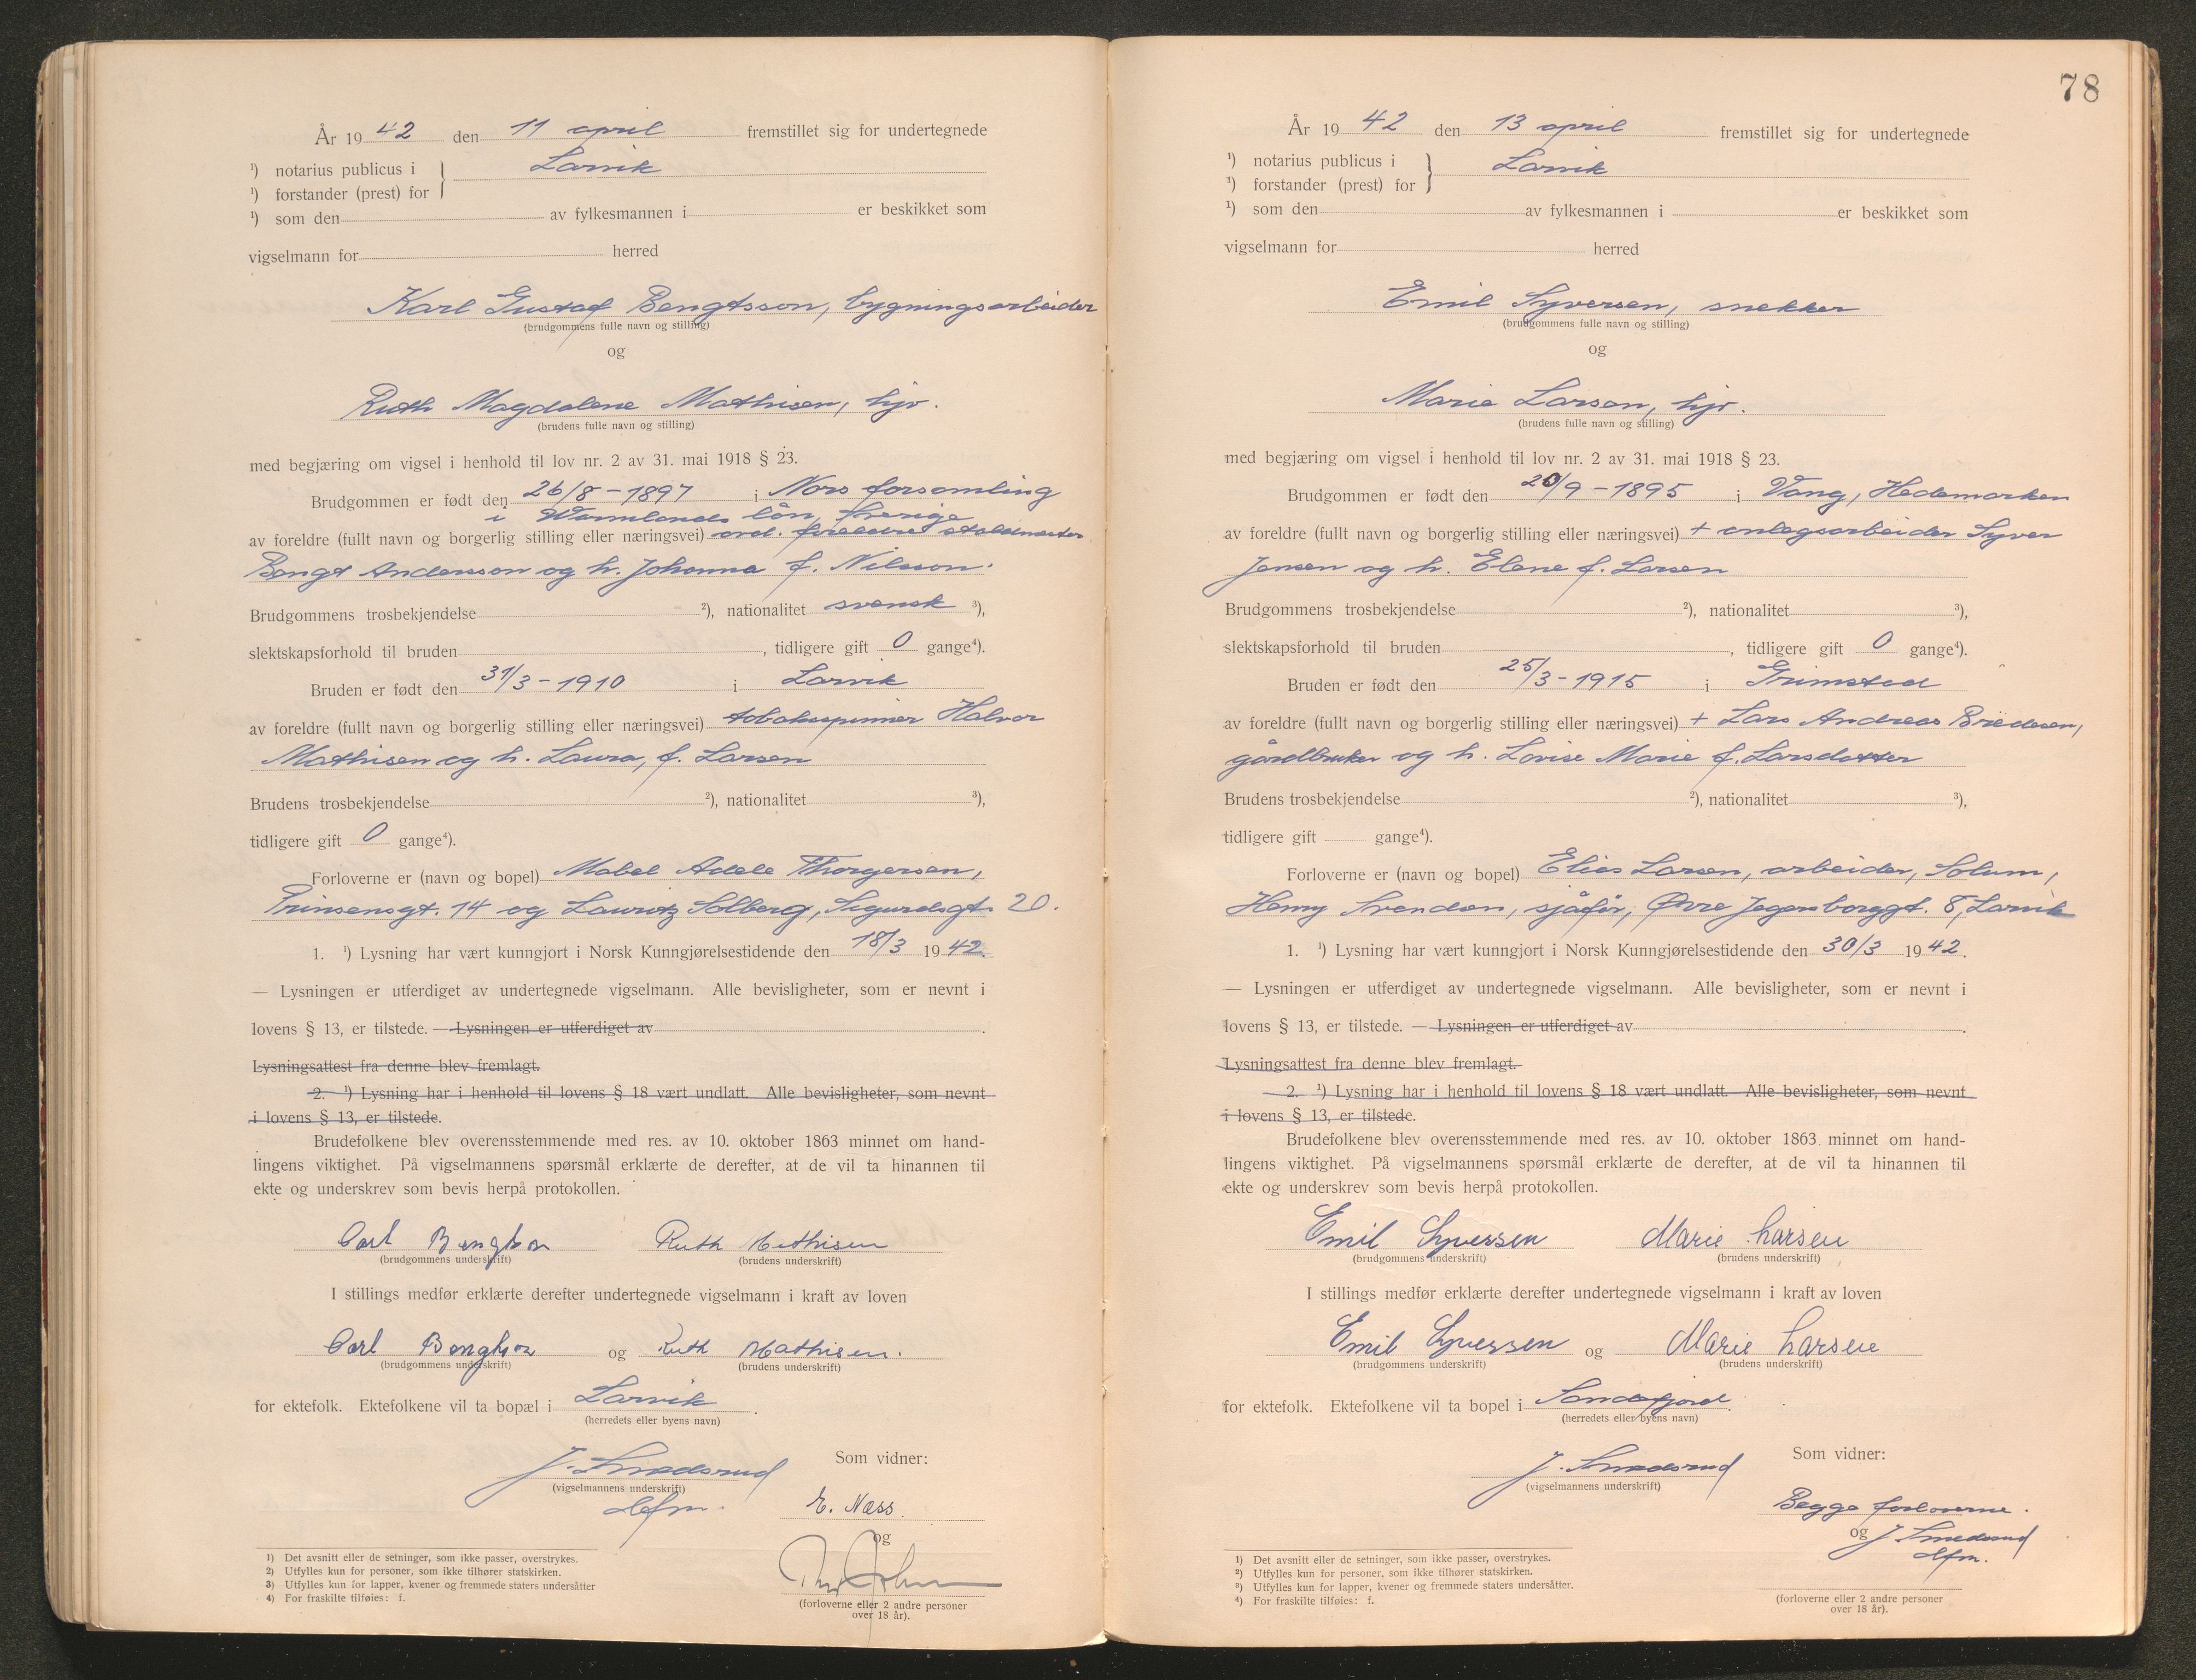 År 1942 den 11 april fremstillet sig for undertegnede
¹) notarius publicus i } Larvik
¹) forstander (prest) for
¹) som den av fylkesmannen i er beskikket som
vigselmann for herred
Karl Gustaf Bengtsson, bygningsarbeider
(brudgommens fulle navn og stilling)
og
Ruth Magdalene Mathisen, hjv.
(brudens fulle navn og stilling)
med begjæring om vigsel i henhold til lov nr. 2 av 31. mai 1918 § 23.
Brudgommen er født den 26/8 - 1897 i Nors forsamling
i Wermlands län, Sverige
av foreldre (fullt navn og borgerlig stilling eller næringsvei) foreldre
Bengt Andersson og h. Johanna f. Nilsson.
Brudgommens trosbekjendelse ²), nationalitet svensk ³),
slektskapsforhold til bruden , tidligere gift 0 gange⁴).
Bruden er født den 31/3 - 1910 i Larvik
av foreldre (fullt navn og borgerlig stilling eller næringsvei) tobaksspinner Halvor
Mathisen og h. Laura, f. Larsen
Brudens trosbekjendelse ²), nationalitet ³),
tidligere gift 0 gange⁴).
Forloverne er (navn og bopel) Mabel Adele Thorgersen,
Prinsensgt. 14 og Lauritz Solberg, Sigurdsgt. 20.
1. ¹) Lysning har vært kunngjort i Norsk Kunngjørelsestidende den 18/3 1942.
— Lysningen er utferdiget av undertegnede vigselmann. Alle bevisligheter, som er nevnt i
lovens § 13, er tilstede. — Lysningen er utferdiget av .
Lysningsattest fra denne blev fremlagt.
2. ¹) Lysning har i henhold til lovens § 18 vært undlatt. Alle bevisligheter, som nevnt
i lovens § 13, er tilstede.
Brudefolkene blev overensstemmende med res. av 10. oktober 1863 minnet om hand-
lingens viktighet. På vigselmannens spørsmål erklærte de derefter, at de vil ta hinannen til
ekte og underskrev som bevis herpå protokollen.
Carl Bengtson Ruth Mathisen
(brudgommens underskrift) (brudens underskrift)
I stillings medfør erklærte derefter undertegnede vigselmann i kraft av loven
Carl Bengtson og Ruth Mathisen.
(brudgommens underskrift) (brudens underskrift)
for ektefolk. Ektefolkene vil ta bopæl i Larvik .
(herredets eller byens navn)
Som vidner:
J. Smedsrud
(vigselmannens underskrift)
dfm.
E. Næss.
og
(forloverne eller 2 andre personer
over 18 år).
¹) Det avsnitt eller de setninger, som ikke passer, overstrykes.
²) Utfylles kun for personer, som ikke tilhører statskirken.
³) Utfylles kun for lapper, kvener og fremmede staters undersåtter
⁴) For fraskilte tilføies: f.
78
År 1942 den 13 april fremstillet sig for undertegnede
¹) notarius publicus i } Larvik
¹) forstander (prest) for
¹) som den av fylkesmannen i er beskikket som
vigselmann for herred
Emil Syversen, snekker
(brudgommens fulle navn og stilling)
og
Marie Larsen, hjv.
(brudens fulle navn og stilling)
med begjæring om vigsel i henhold til lov nr. 2 av 31. mai 1918 § 23.
Brudgommen er født den 20/9 - 1895 i Vang, Hedemarken
av foreldre (fullt navn og borgerlig stilling eller næringsvei) + anlegsarbeider Syver
Jensen og h. Elene f. Larsen
Brudgommens trosbekjendelse ²), nationalitet ³),
slektskapsforhold til bruden , tidligere gift 0 gange⁴).
Bruden er født den 25/3 - 1915 i Grimstad
av foreldre (fullt navn og borgerlig stilling eller næringsvei) + Lars Andreas Bredesen,
gårdbruker og h. Lovise Marie f. Larsdatter
Brudens trosbekjendelse ²), nationalitet ³),
tidligere gift gange⁴).
Forloverne er (navn og bopel) Elias Larsen, arbeider, Solum,
Henry Svendsen, sjåfør, Øvre Jegersborggt. 8, Larvik
1. ¹) Lysning har vært kunngjort i Norsk Kunngjørelsestidende den 30/3 1942.
— Lysningen er utferdiget av undertegnede vigselmann. Alle bevisligheter, som er nevnt i
lovens § 13, er tilstede. — Lysningen er utferdiget av .
Lysningsattest fra denne blev fremlagt.
2. ¹) Lysning har i henhold til lovens § 18 vært undlatt. Alle bevisligheter, som nevnt
i lovens § 13, er tilstede.
Brudefolkene blev overensstemmende med res. av 10. oktober 1863 minnet om hand-
lingens viktighet. På vigselmannens spørsmål erklærte de derefter, at de vil ta hinannen til
ekte og underskrev som bevis herpå protokollen.
Emil Syversen Marie Larsen
(brudgommens underskrift) (brudens underskrift)
I stillings medfør erklærte derefter undertegnede vigselmann i kraft av loven
Emil Syversen og Marie Larsen
(brudgommens underskrift) (brudens underskrift)
for ektefolk. Ektefolkene vil ta bopel i Sandefjord.
(herredets eller byens navn)
Som vidner:
J. Smedsrud
(vigselmannens underskrift)
Begge forloverne.
og J. Smedsrud
dfm.
(forloverne eller 2 andre personer
over 18 år).
¹) Det avsnitt eller de setninger, som ikke passer, overstrykes.
²) Utfylles kun for personer, som ikke tilhører statskirken.
³) Utfylles kun for lapper, kvener og fremmede staters undersåtter.
⁴) For fraskilte tilføies: f.